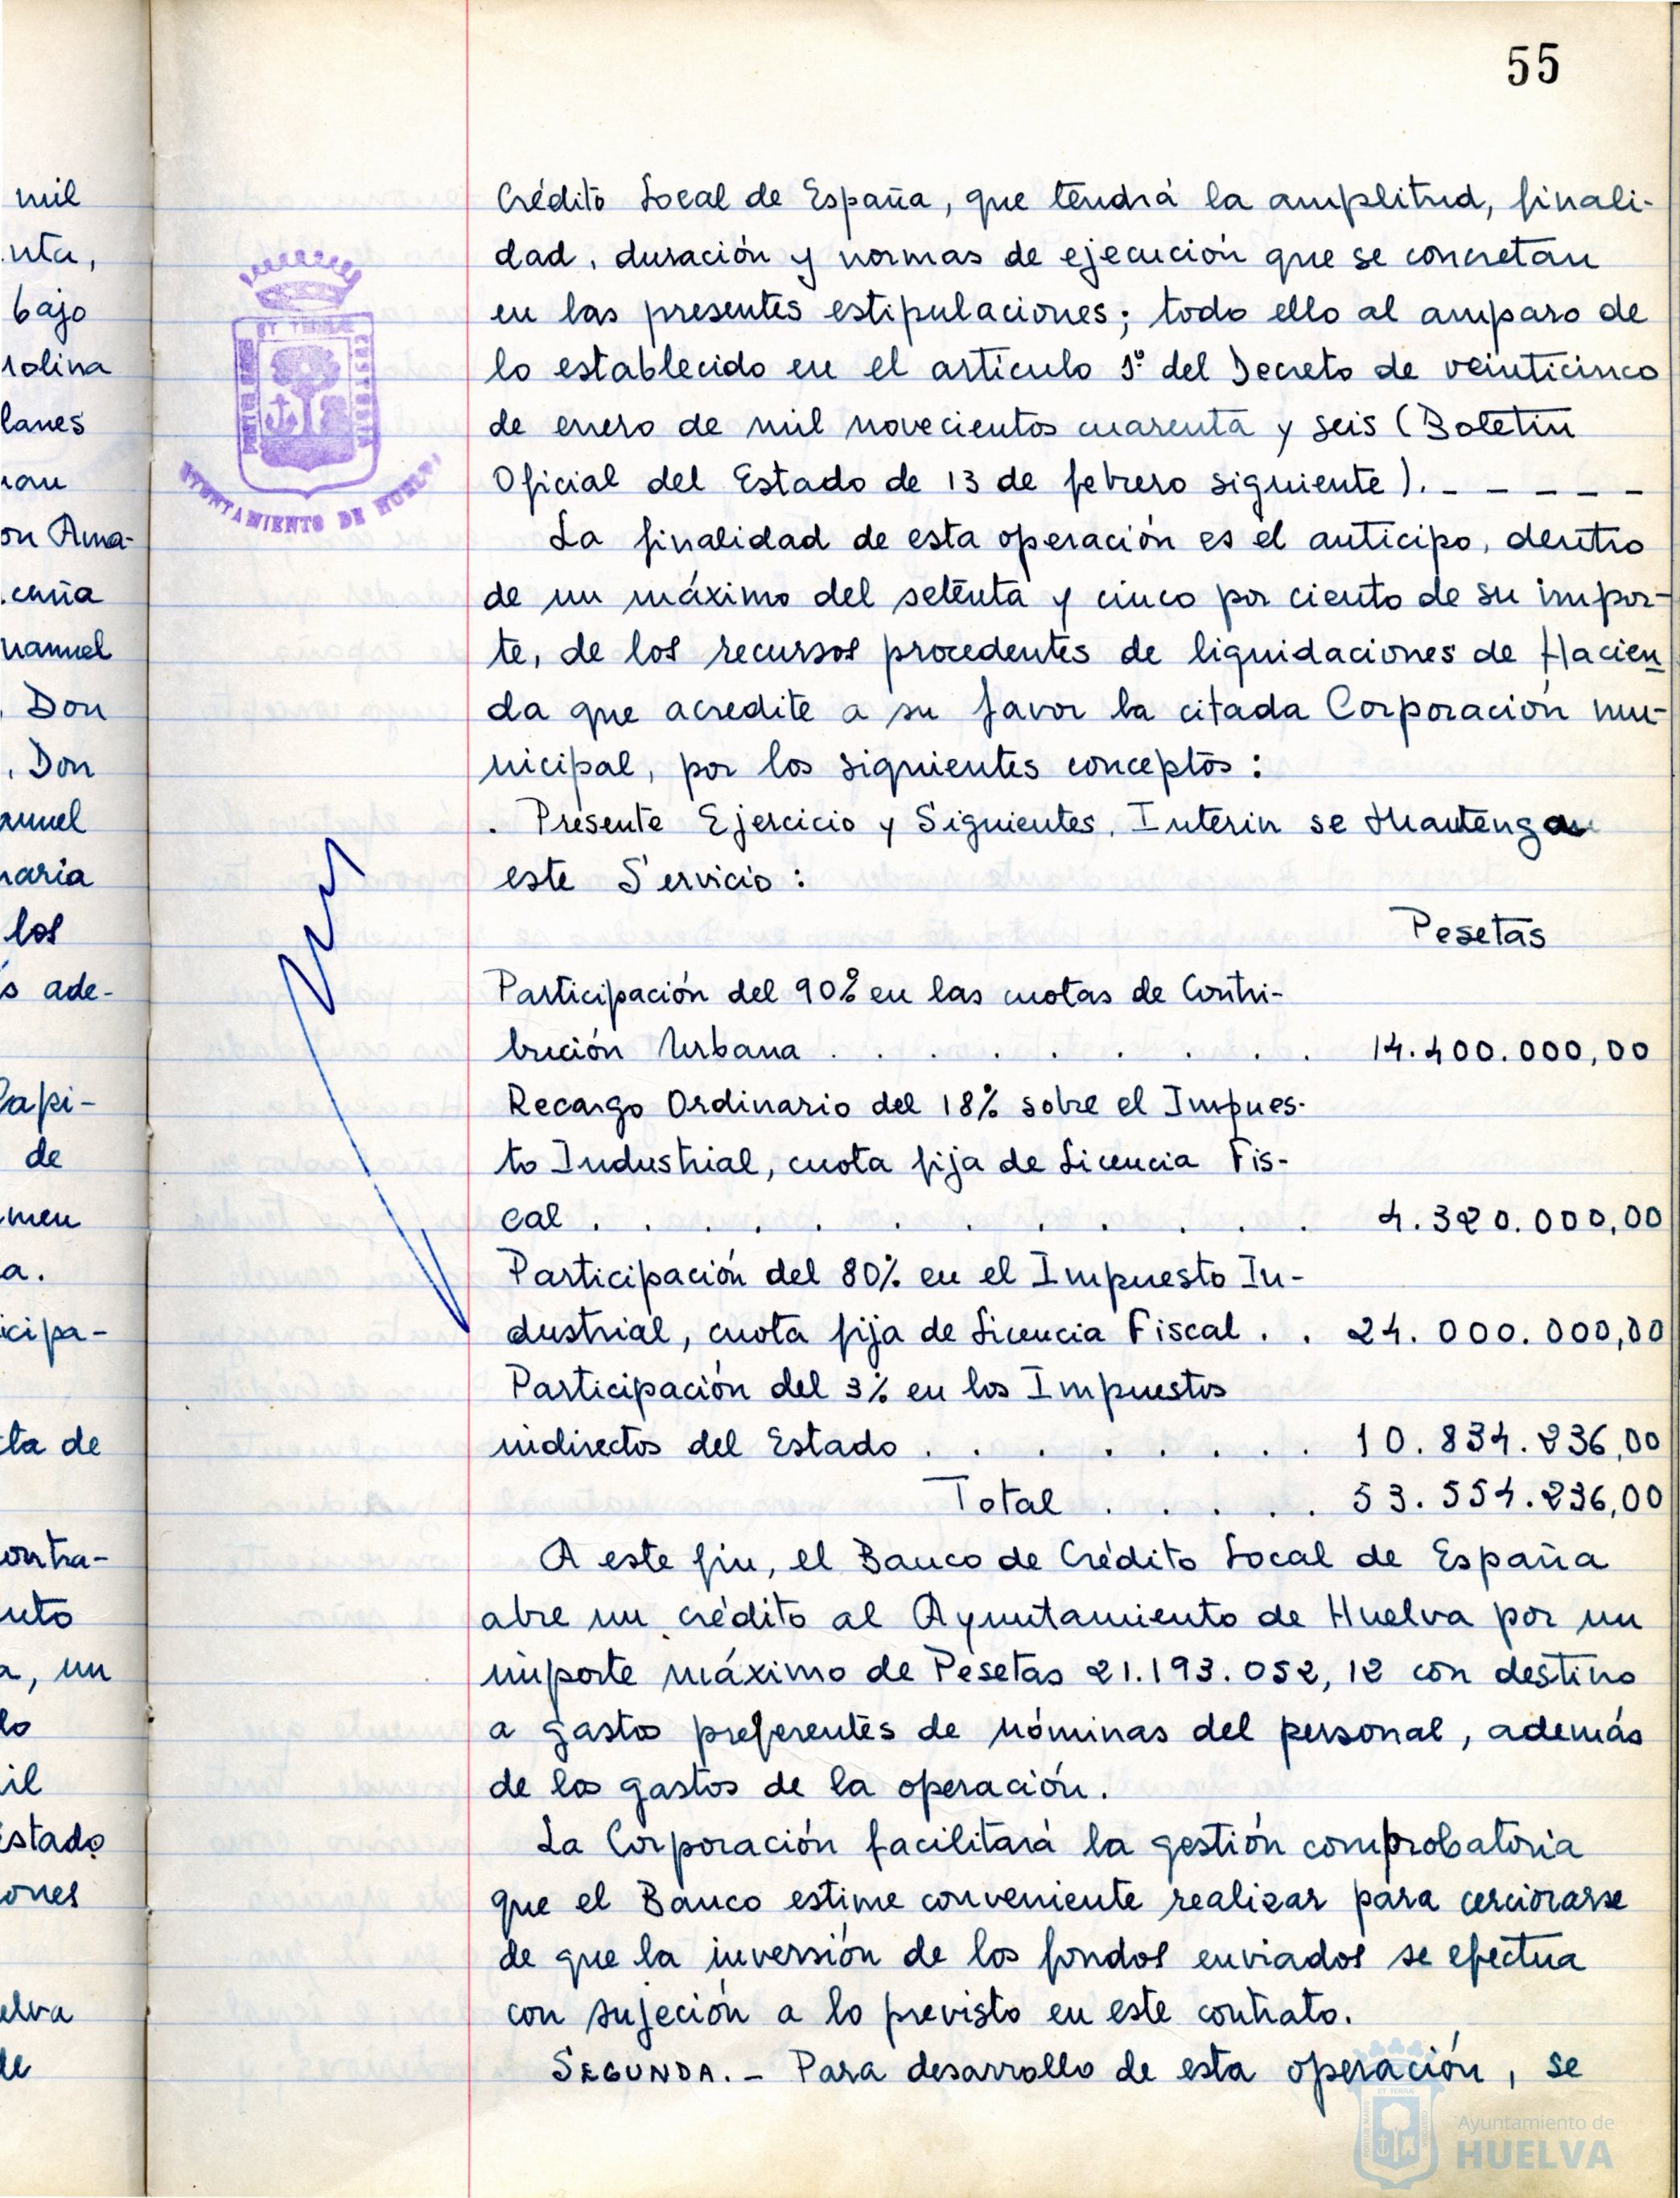 55
mil
nta,
bajo
rolina
lanes
on Ama-
manuel
Don
Don
naria
los
s ade-
Capi-
de
men
a.
icipa-
ta de
ontra-
nto
a, un
lo
il
Estado
ones
elva
de
ET TERRAE CUSTODIA
PORTUS MARIS
AYUNTAMIENTO DE HUELVA
Crédito Local de España, que tendrá la amplitud, finali-
dad, duración y normas de ejecución que se concretan
en las presentes estipulaciones; todo ello al amparo de
lo establecido en el artículo 1º del Decreto de veinticinco
de enero de mil novecientos cuarenta y seis (Boletín
Oficial del Estado de 13 de febrero siguiente). - - - - -
La finalidad de esta operación es el anticipo, dentro
de un máximo del setenta y cinco por ciento de su impor-
te, de los recursos procedentes de liquidaciones de Hacien
da que acredite a su favor la citada Corporación mu-
nicipal, por los siguientes conceptos:
. Presente Ejercicio y Siguientes, Interin se Mantengan
este Servicio:
Pesetas
Participación del 90% en las cuotas de Contri-
bución Urbana . . . . . . . . . 14.400.000,00
Recargo Ordinario del 18% sobre el Impues-
to Industrial, cuota fija de Licencia Fis-
cal . . . . . . . . . . . 4.320.000,00
Participación del 80% en el Impuesto In-
dustrial, cuota fija de Licencia Fiscal . . 24.000.000,00
Participación del 3% en los Impuestos
indirectos del Estado . . . . . . . 10.834.236,00
Total . . . . . 53.554.236,00
A este fin, el Banco de Crédito Local de España
abre un crédito al Ayuntamiento de Huelva por un
importe máximo de Pesetas 21.193.052,12 con destino
a gastos preferentes de nóminas del personal, además
de los gastos de la operación.
La Corporación facilitará la gestión comprobatoria
que el Banco estime conveniente realizar para cerciorarse
de que la inversión de los fondos enviados se efectua
con sujeción a lo previsto en este contrato.
SEGUNDA. - Para desarrollo de esta operación, se
Ayuntamiento de
HUELVA